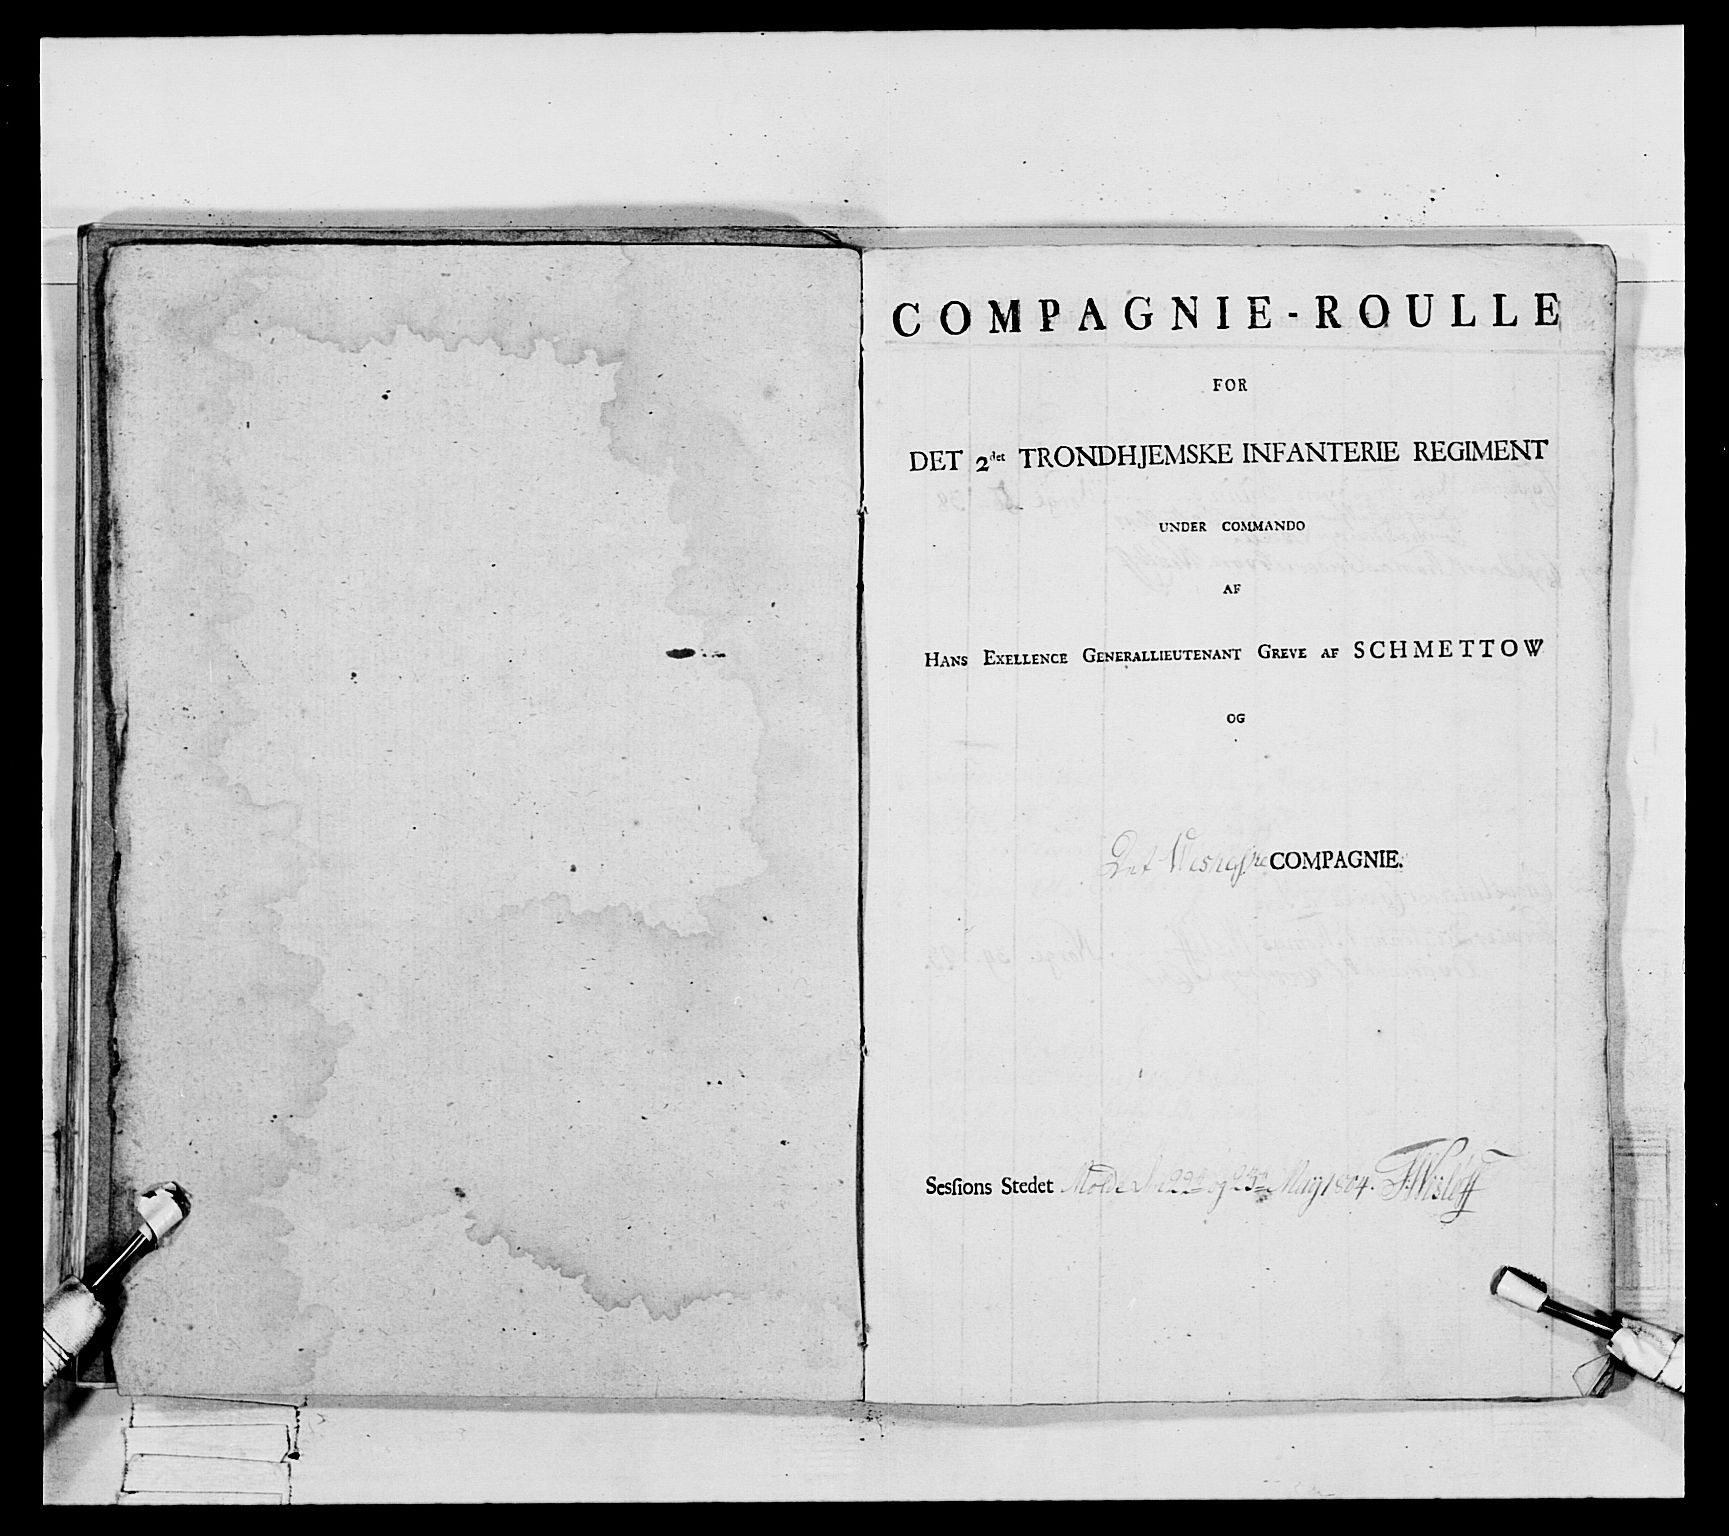 COMPAGNIE-ROULLE
FOR
DET 2det TRONDHJEMSKE INFANTERIE REGIMENT
UNDER COMMANDO
AF
HANS EXELLENCE GENERALLIEUTENANT GREVE AF SCHMETTOW
OG
Det COMPAGNIE.
Sesſions Stedet Molde d. 22de og 23de May 1804.